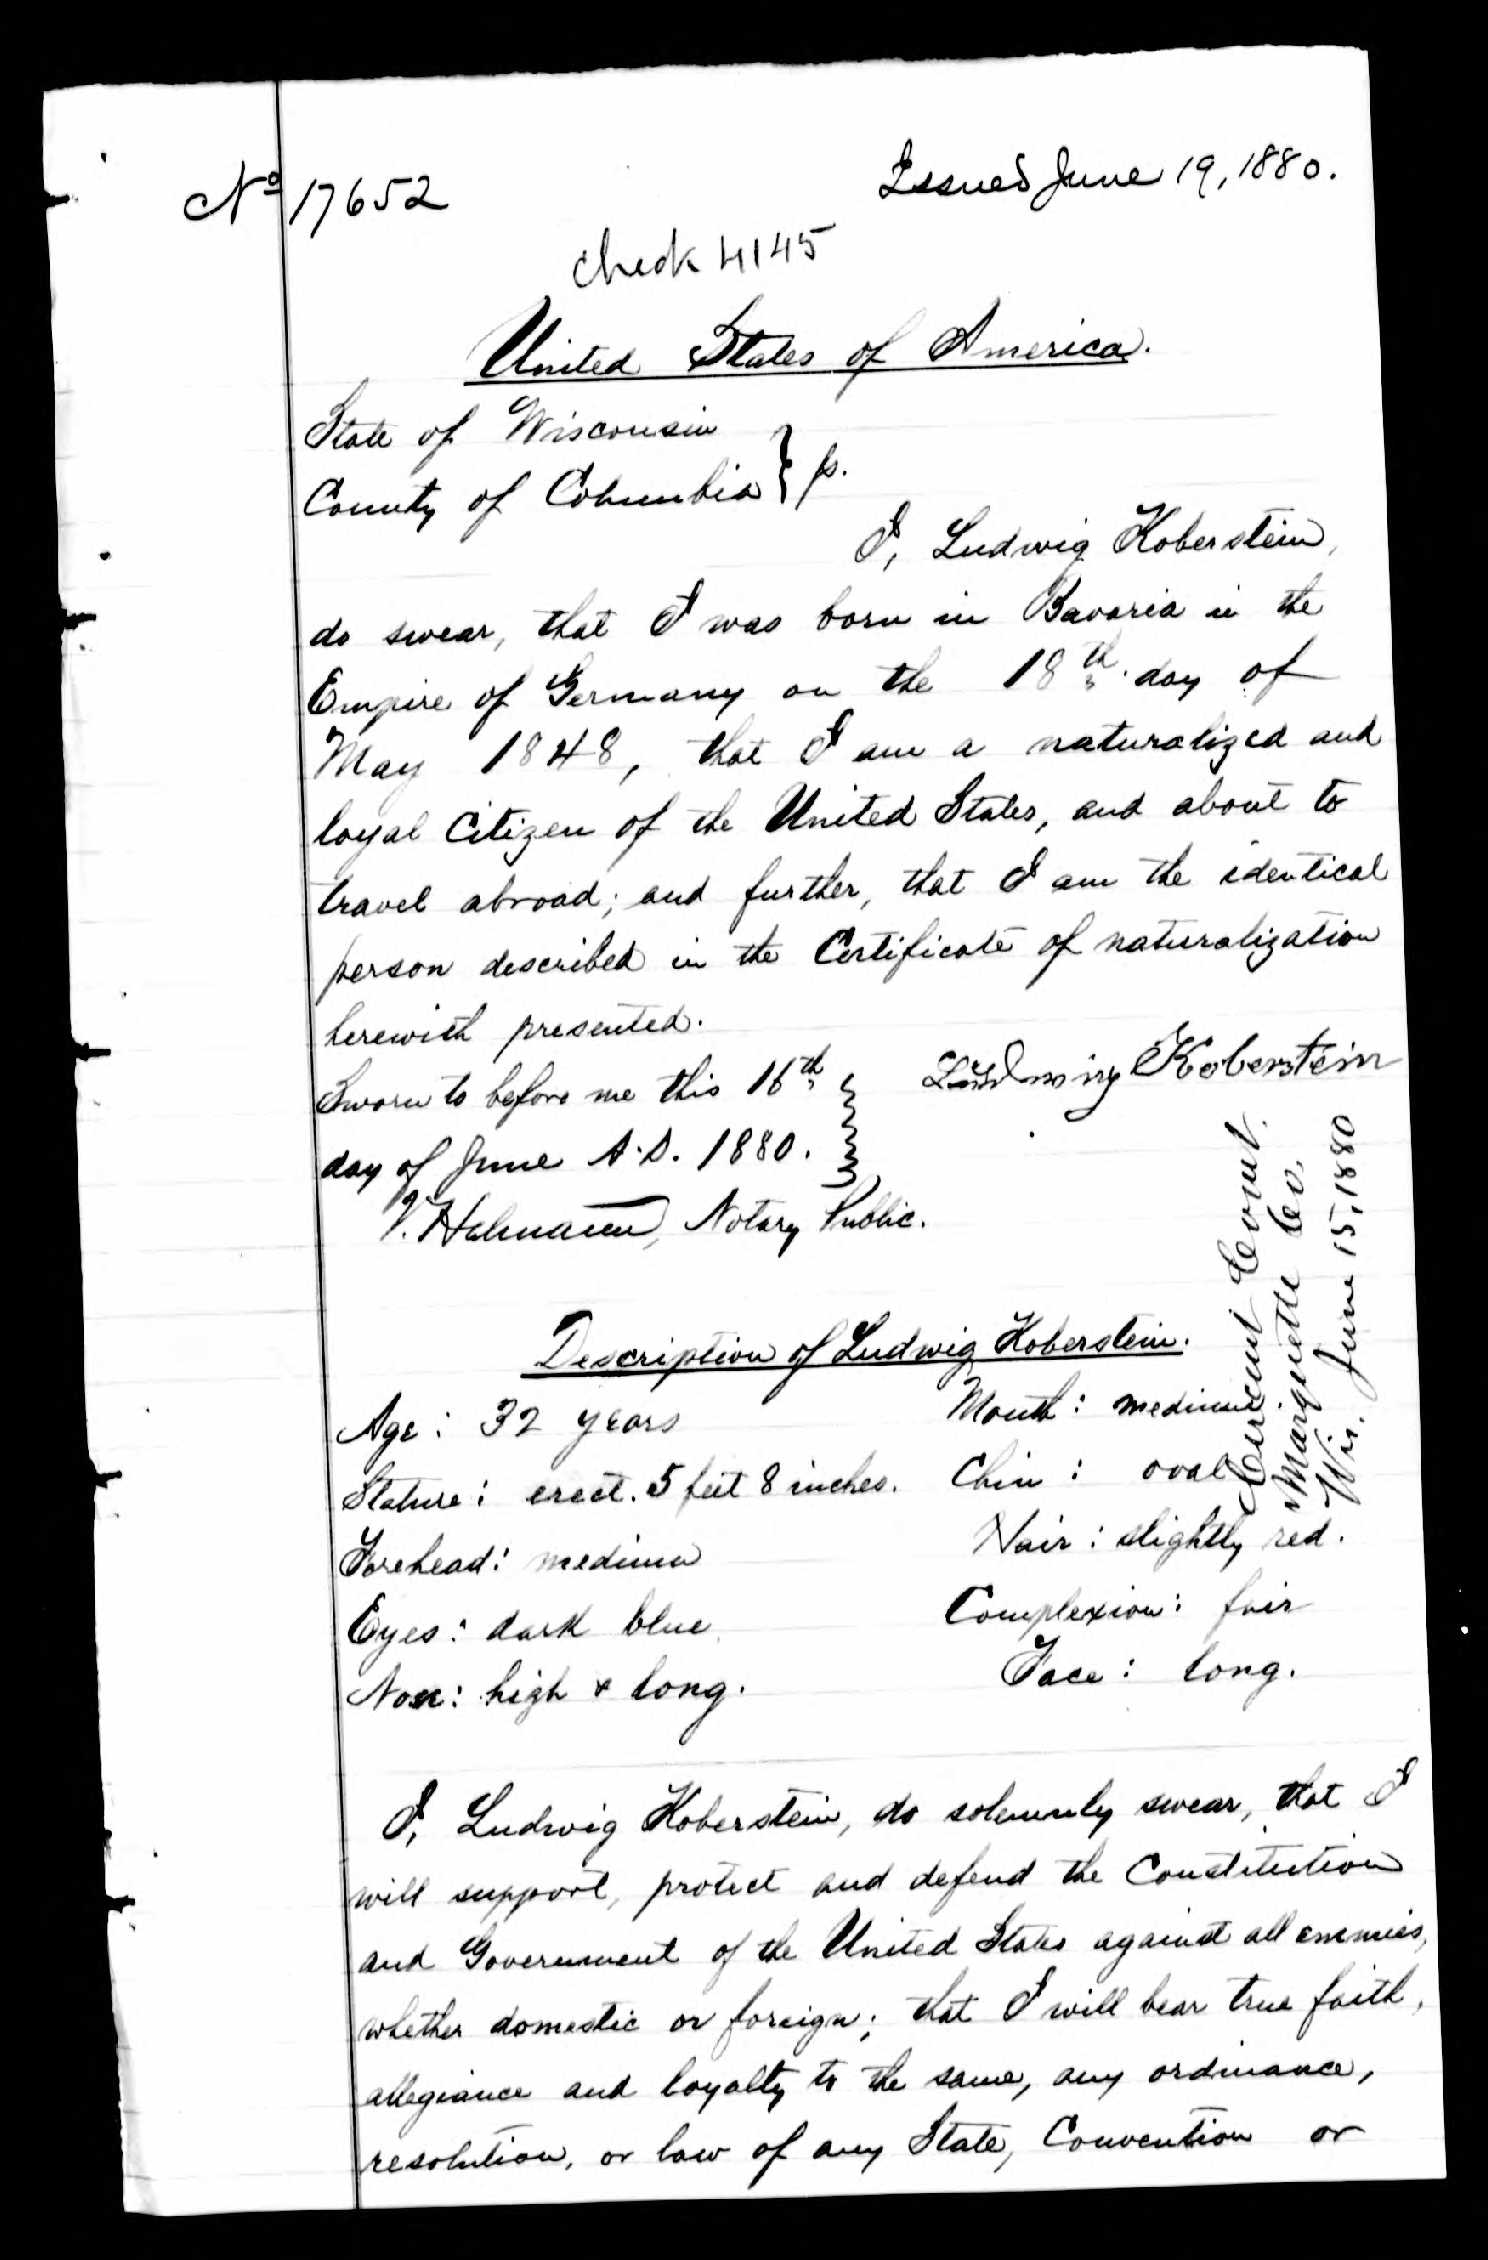 No 17652
Issued June 19, 1880.
check 4145
United States of America.
State of Wisconsin
County of Columbia } ss.
I, Ludwig Koberstein,
do swear, that I was born in Bavaria in the
Empire of Germany on the 18th day of
May 1848, that I am a naturalized and
loyal Citizen of the United States, and about to
travel abroad; and further, that I am the identical
person described in the Certificate of naturalization
herewith presented.
Sworn to before me this 16th
day of June A.D. 1880.
Ludwig Koberstein
Notary Public.
Circuit Court.
Marquette Co.
Wis. June 15, 1880
Description of Ludwig Koberstein.
Age: 32 years
Mouth: medium.
Stature: erect. 5 feet 8 inches.
Chin: oval
Forehead: medium
Hair: slightly red.
Eyes: dark blue
Complexion: fair
Nose: high & long.
Face: long.
I, Ludwig Koberstein, do solemnly swear, that I
will support, protect and defend the Constitution
and Government of the United States against all enemies,
whether domestic or foreign; that I will bear true faith,
allegiance and loyalty to the same, any ordinance,
resolution, or law of any State, Convention or